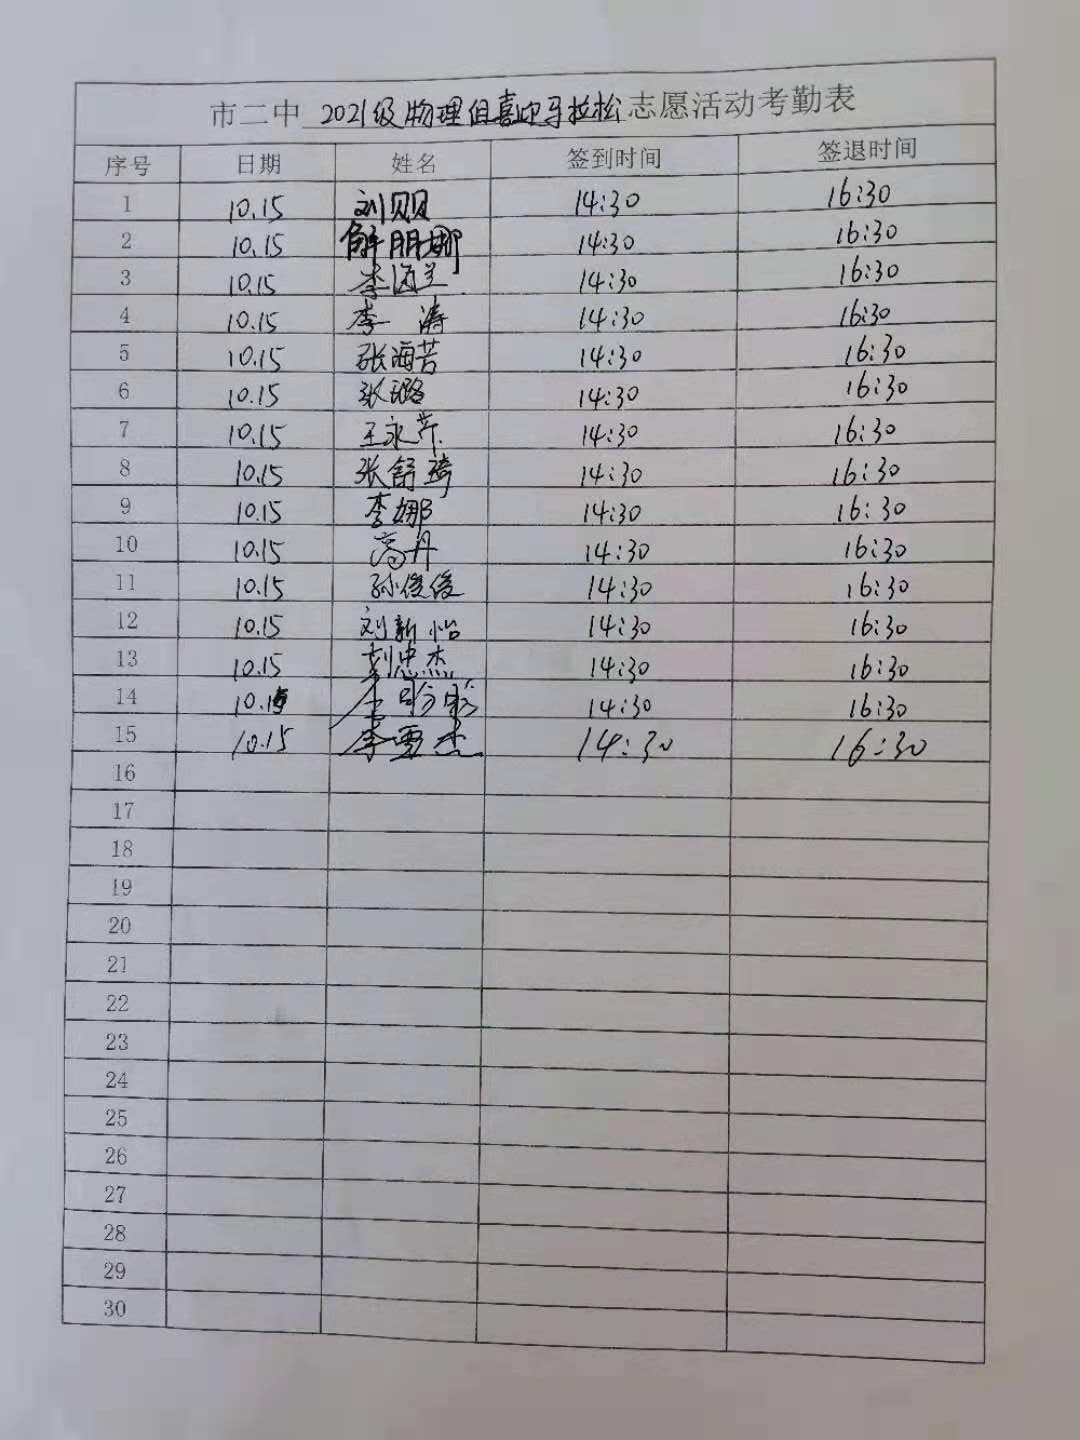 市二中 2021级物理组喜迎马拉松 志愿活动考勤表
序号 日期 姓名 签到时间 签退时间
1 10.15 刘贝贝 14:30 16:30
2 10.15 解朋娜 14:30 16:30
3 10.15 李海兰 14:30 16:30
4 10.15 李涛 14:30 16:30
5 10.15 张海芳 14:30 16:30
6 10.15 张璐 14:30 16:30
7 10.15 王永芹 14:30 16:30
8 10.15 张舒琦 14:30 16:30
9 10.15 李娜 14:30 16:30
10 10.15 高丹 14:30 16:30
11 10.15 孙俊俊 14:30 16:30
12 10.15 刘新怡 14:30 16:30
13 10.15 忠杰 14:30 16:30
14 10.15 14:30 16:30
15 10.15 李雪杰 14:30 16:30
16
17
18
19
20
21
22
23
24
25
26
27
28
29
30